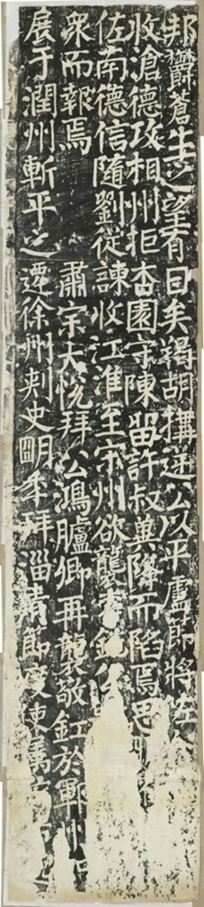 邦欝蒼生之望有日矣羯胡構逆公以平盧節將佐
收滄德攻相州拒杏園守陳留許叔冀降而陷焉思
佐南德信隨劉從諫收江淮至宋州欲襲李
衆而報焉　肅宗大悅拜公鴻臚卿再襲敬釭於鄆州
展于潤州斬平之遷徐州刺史明年拜淄青節度東